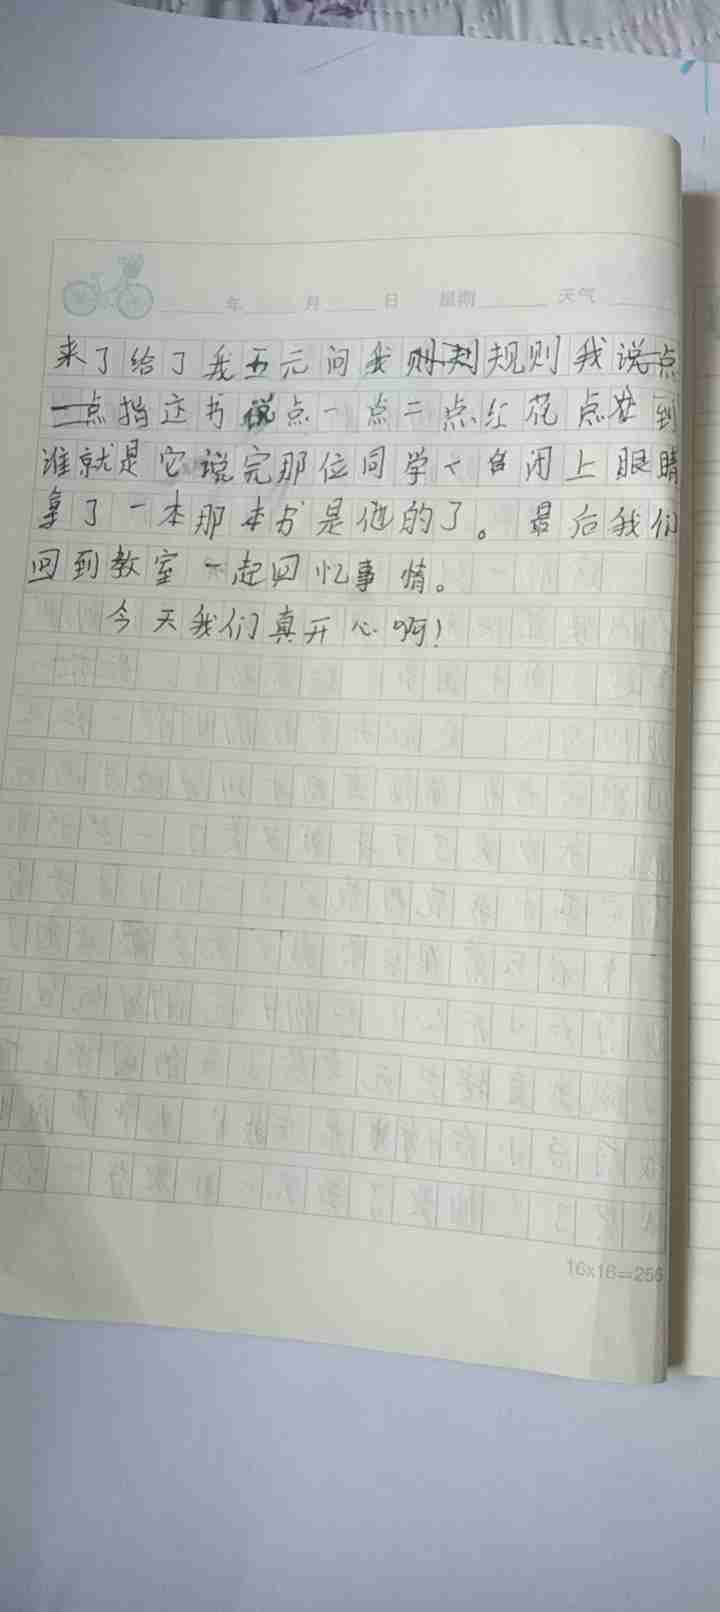 年 月 日 星期 天气
来了给了我五元问我规则我说点
一点指这书说点一点二点红花点在到
谁就是它说完那位同学く自闭上眼睛
拿了一本那本书是他的了。最后我们
回到教室一起回忆事情。
今天我们真开心啊!
16x16=256